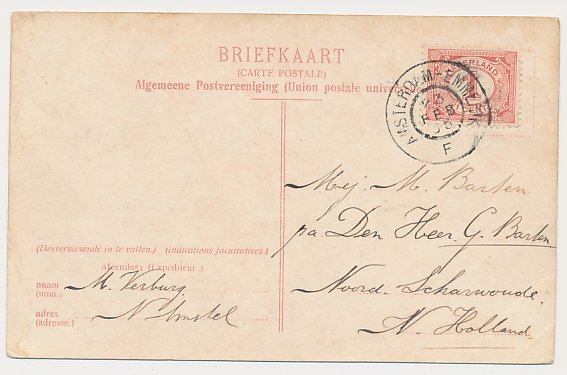 BRIEFKAART
(CARTE POSTALE)
Algemeene Postvereeniging (Union postale universelle)
NEDERLAND
CENT
AMSTERDAM-EMMERIK
3
FEB
F
Mej. M. Barten
pa Den Heer G. Barten
Noord-Scharwoude.
N Holland.
(Desverkiesende in te vullen.) (indications facultatives.)
afzender: (Expéditeur:)
naam M. Verburg
(nom.)
adres N. Amstel
(adresse.)